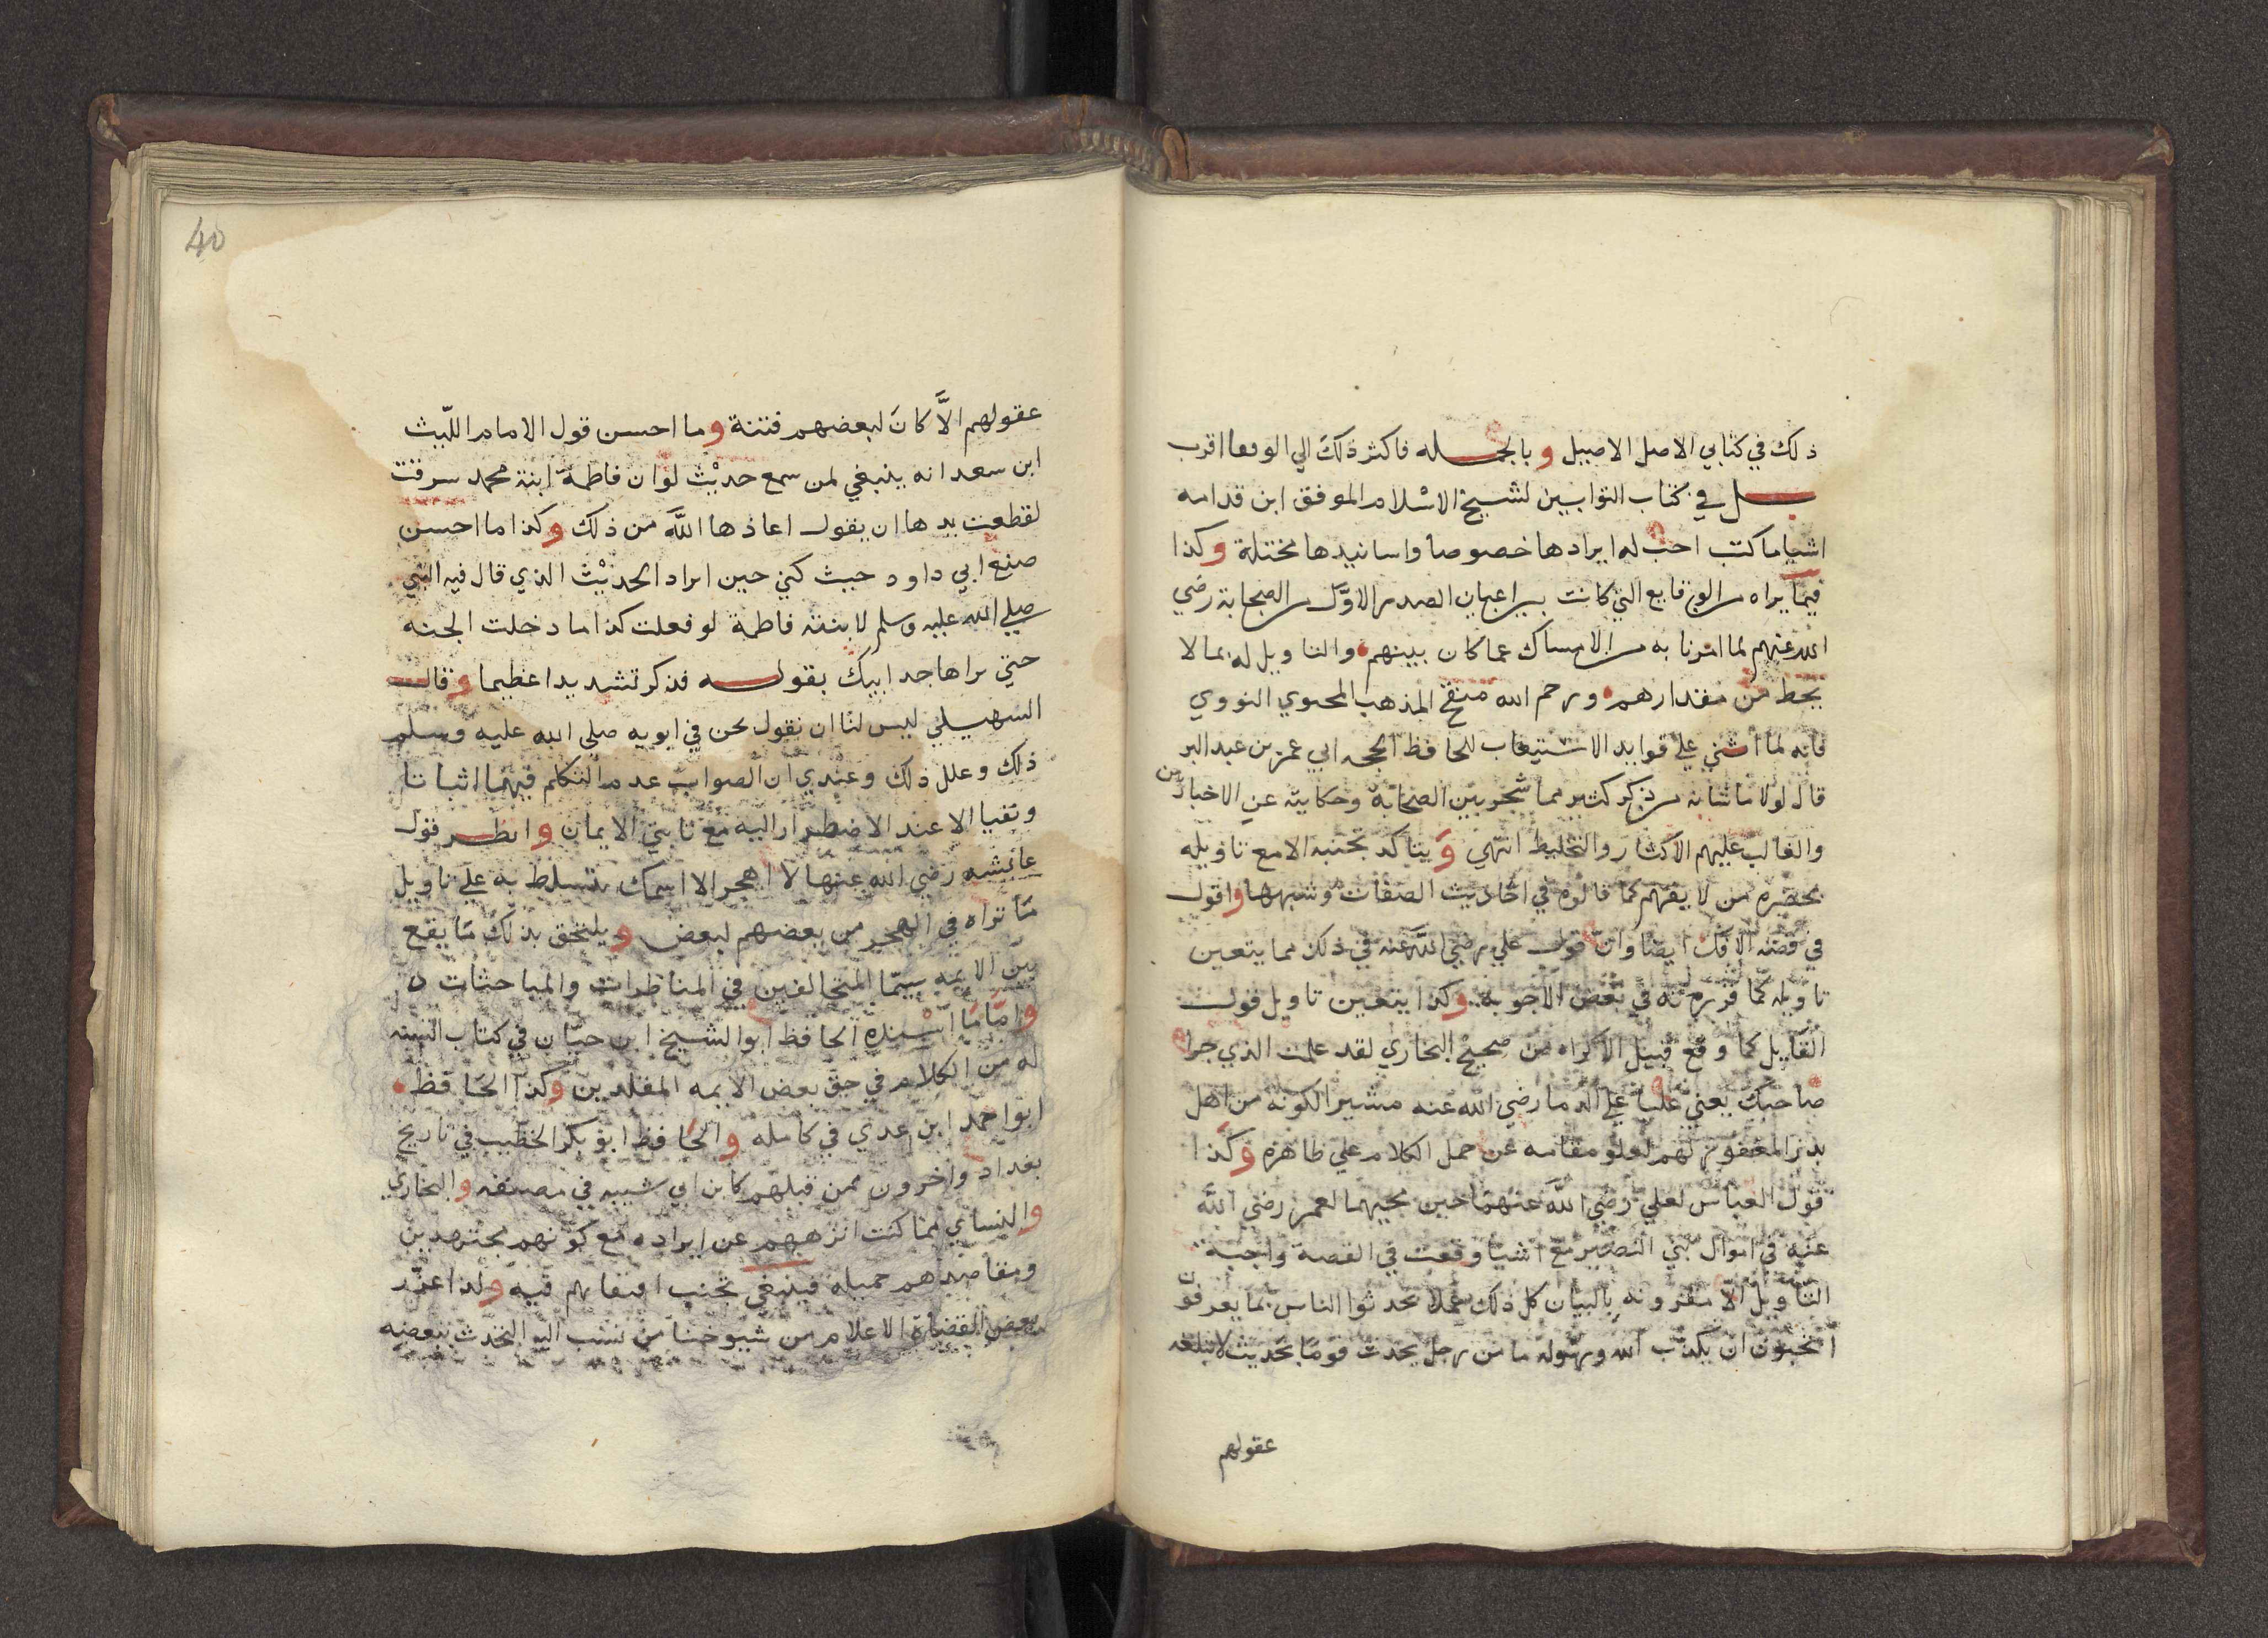 ذلك في كتابي الاصل الاصيل وبالجمله فاكثر ذلك الي الوقعا اقرب
بل في كتاب التوابين لشيخ الاسلام الموفق ابن قدامه
اشيا ما كنت احب له ايرادها خصوصا واسانيدها مختلة وكذا
فيما يراه من الوقايع التي كانت بين اعيان الصدر الاول من الصحابة رضي
الله عنهم لما امرنا به من الامساك عما كان بينهم والتاويل له بما لا
يحط من مقدارهم ورحم الله منقح المذهب المحيوي النووي
فانه لما اثني علي فوايد الاستيعاب للحافظ الحجه ابي عمر بن عبد البر
قال لولا ما شانه من ذكر كثير مما شجر بين الصحابة وحكايته عن الاخباريين
والغالب عليهم الاكثار والتخليط انتهي ويتاكد تجنبه الا مع تاويله
بحضرة من لا يفهم كما قالوه في احاديث الصفات وشبهها واقول
في قصة الافك ايضا وان قول علي رضي الله عنه في ذلك مما يتعين
تاويله كما قررته في بعض الاجوبة وكذا يتعين تاويل قول
القايل كما وقع قبيل الاكراه من صحيح البخاري لقد علمت الذي جرا
صاحبك يعني عليا علي الدما رضي الله عنه مشيرا لكونه من اهل
بدر المغفور لهم لعلو مقامه عن حمل الكلام علي ظاهره وكذا
قول العباس لعلي رضي الله عنهما حين مجيهما لعمر رضي الله
عنه في اموال بني النضير مع اشيا وقعت في القصة واجبة
التاويل الا مقرونه بالبيان كل ذلك عملا بحدثوا الناس بما يعرفون
اتحبون ان يكذب الله ورسوله ما من رجل يحدث قوما بحديث لا تبلغه
عقولهم
40
عقولهم الا كان لبعضهم فتنة وما احسن قول الامام الليث
ابن سعد انه ينبغي لمن سمع حديث لو ان فاطمة ابنة محمد سرقت
لقطعت يدها ان يقول اعاذها الله من ذلك وكذا ما احسن
صنع ابي داود حيث كني حين ايراد الحديث الذي قال فيه النبي
صلي الله عليه وسلم لابنته فاطمة لو فعلت كذا ما دخلت الجنه
حتي يراها جد ابيك بقوله فذكر تشديدا عظيما وقال
السهيلي ليس لنا ان نقول نحن في ابويه صلى الله عليه وسلم
ذلك وعلل ذلك وعندي ان الصواب عدم التكلم فيهما اثباتا
ونفيا الا عند الاضطرار اليه مع ثابتي الايمان وانظر قول
عائشه رضي الله عنها لا اهجر الا اسمك يتسلط به علي تاويل
ما تراه في الهجر من بعضهم لبعض ويلتحق بذلك ما يقع
بين الايمه سيما المتخالفين في المناظرات والمباحثات ه
واما ما اسنده الحافظ ابو الشيخ ابن حبان في كتاب السنه
له من الكلام في حق بعض الايمه المقلدين وكذا الحافظ
ابو احمد ابن عدي في كامله والحافظ ابو بكر الخطيب في تاريخ
بغداد واخرون ممن قبلهم كابن ابي شيبه في مصنفه والبخاري
والنساي مما كنت انزههم عن ايراده مع كونهم مجتهدين
ومقاصدهم جميله فينبغي تجنب اقتفايهم فيه ولذا عزر
بعض القضاة الاعلام من شيوخنا من نسب اليه التحدث ببعضه